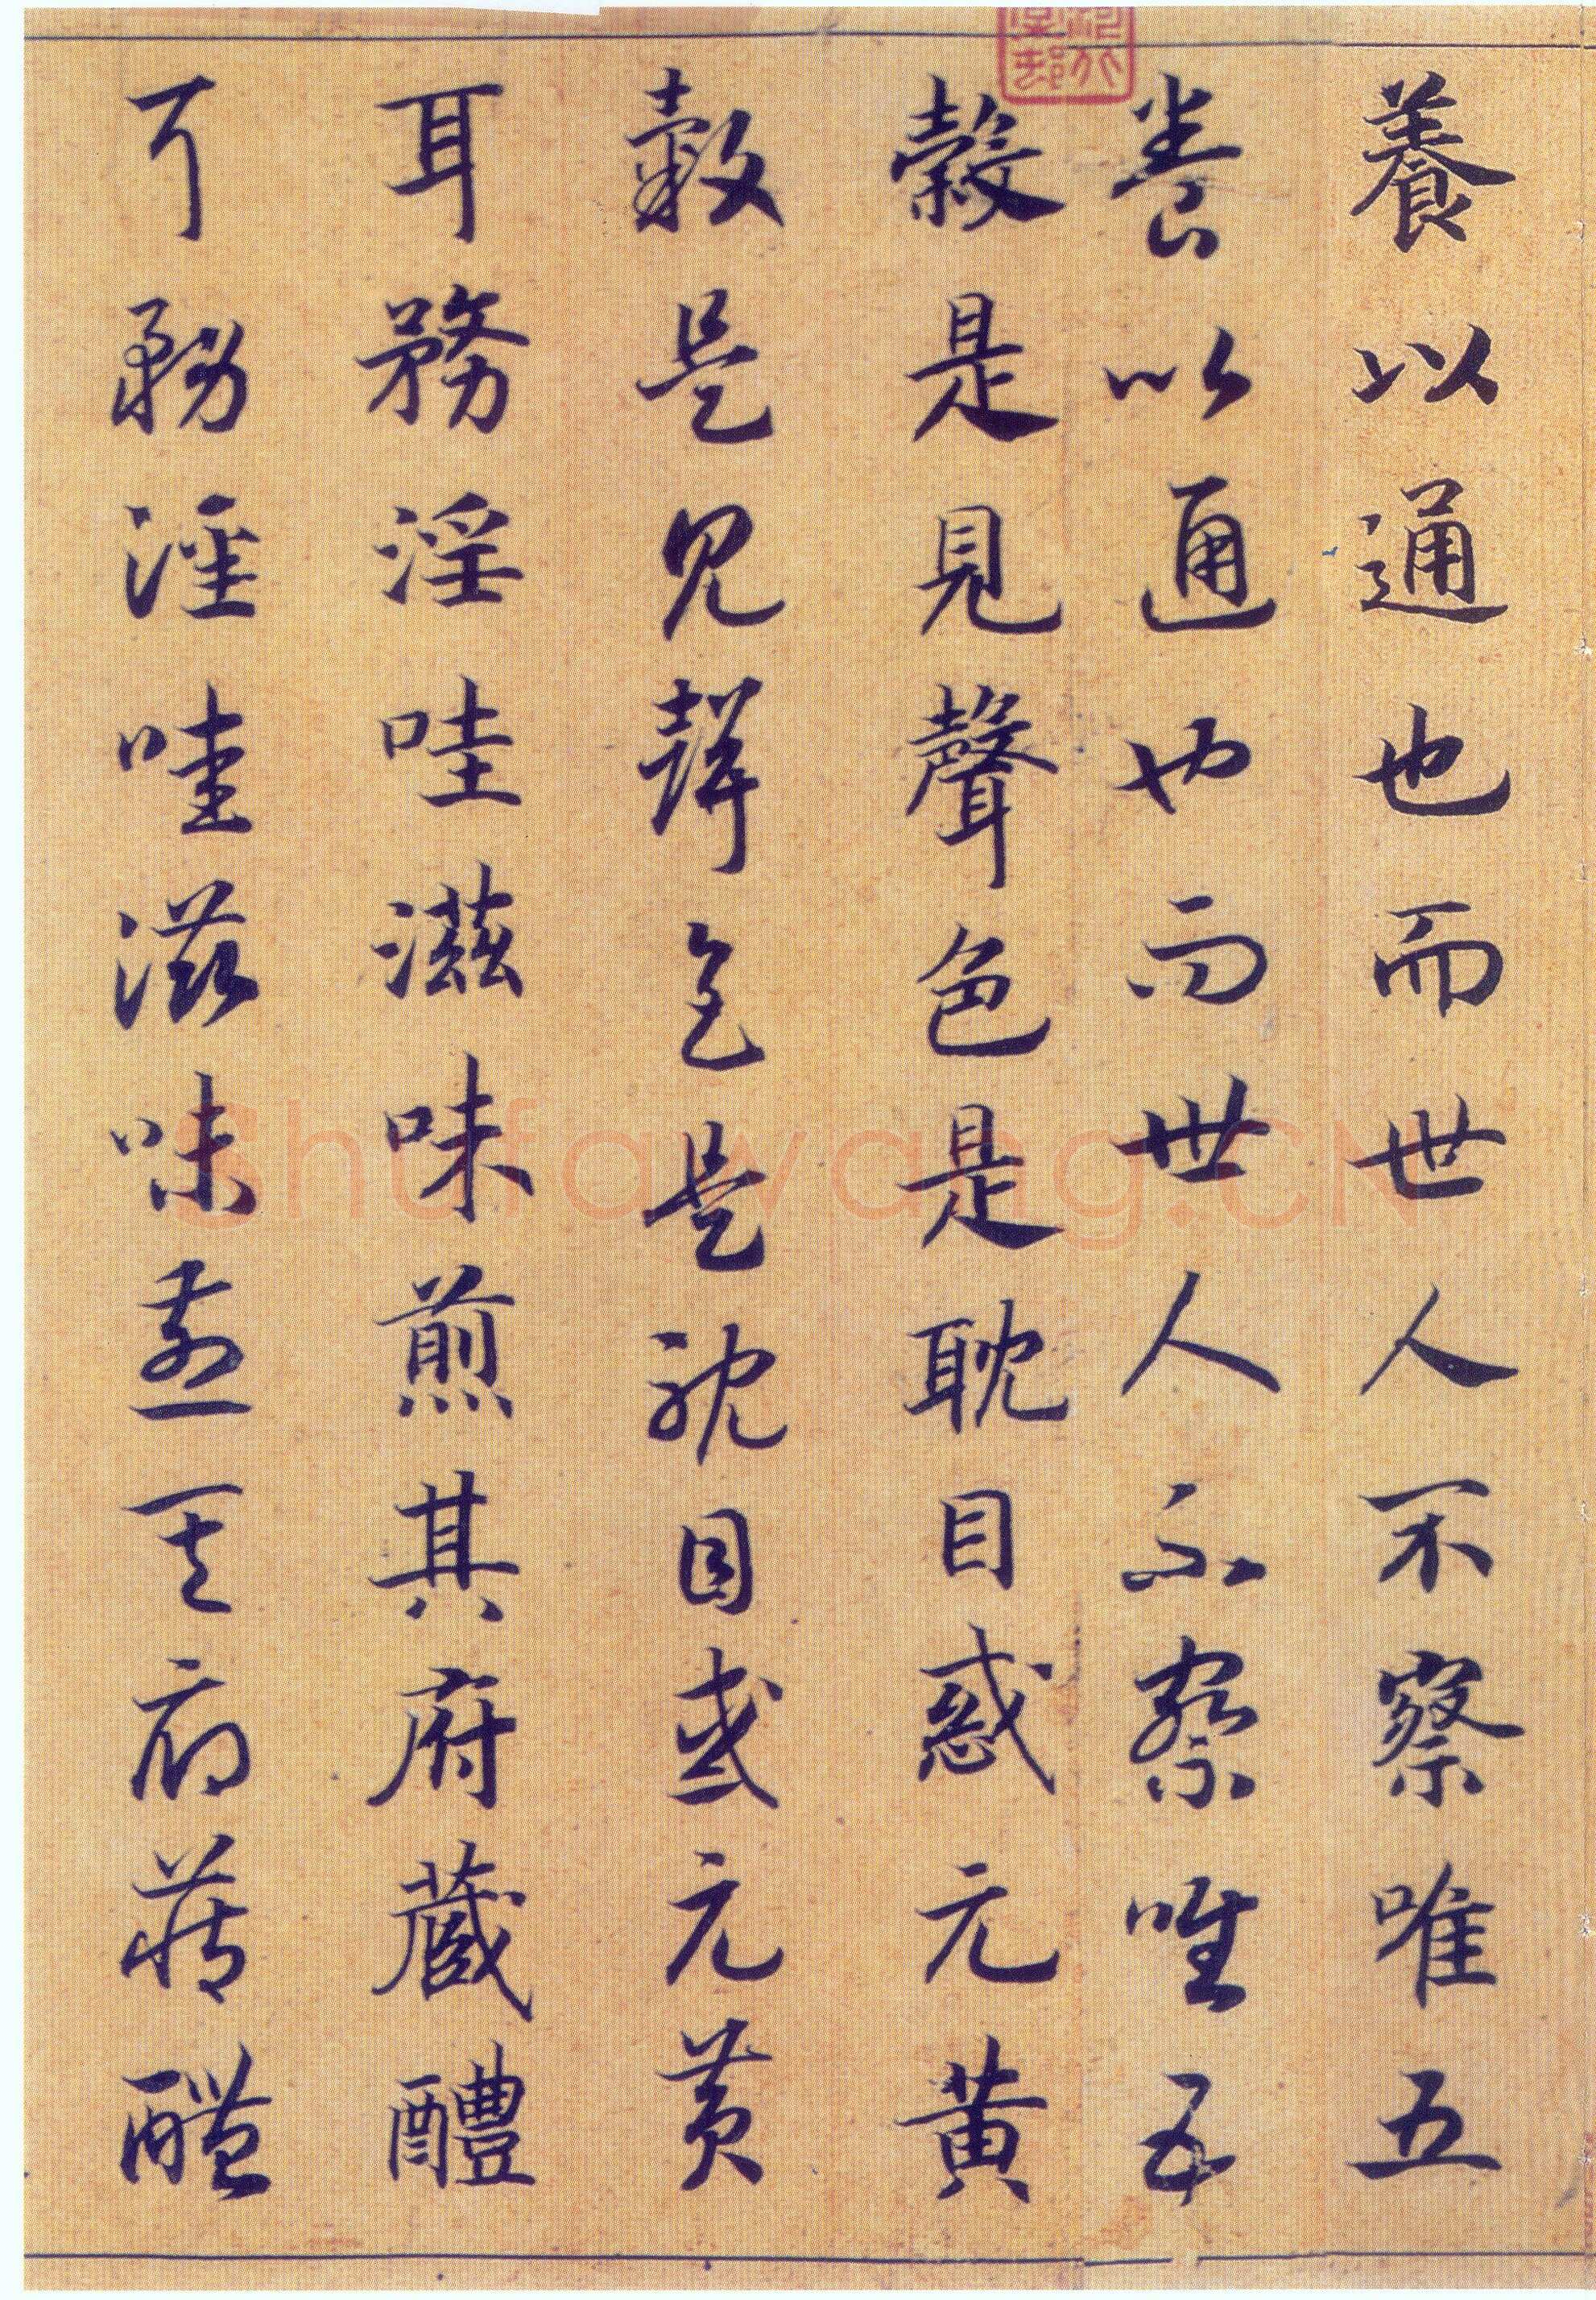 養以通也而世人不察唯五
養以通也而世人不察唯五
穀是見聲色是耽目惑元黃
穀是見聲色是耽目惑元黃
耳務淫哇滋味煎其府藏醴
耳務淫哇滋味煎其府藏醴
Shufawang.CN